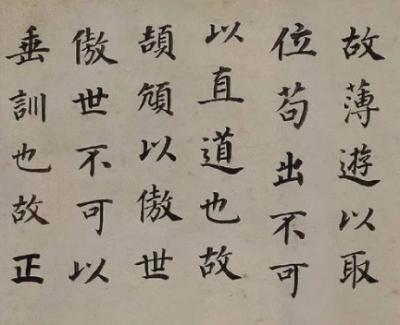 故薄遊以取
位苟出不可
以直道也故
頡頏以傲世
傲世不可以
垂訓也故正